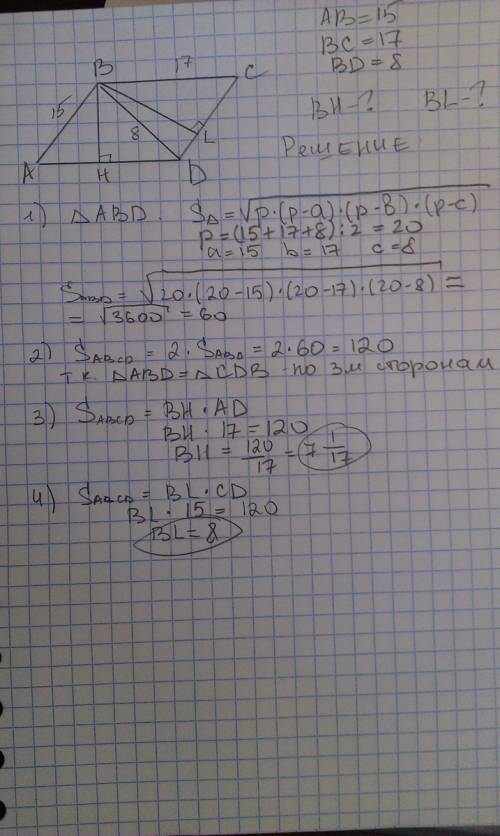 AB = 15
BC = 17
BD = 8
BH - ? BL - ?
Решение
B 17 C
15
8 L
A H D
1) △ABD. S△ = √p·(p-a)·(p-b)·(p-c)
p = (15+17+8):2 = 20
a = 15 b = 17 c = 8
SABD = √20·(20-15)·(20-17)·(20-8) =
= √3600 = 60
2) SABCD = 2·SABD = 2·60 = 120
т.к. △ABD = △CDB - по 3м сторонам
3) SABCD = BH·AD
BH·17 = 120
BH = 120/17 = 7 1/17
4) SABCD = BL·CD
BL·15 = 120
BL = 8